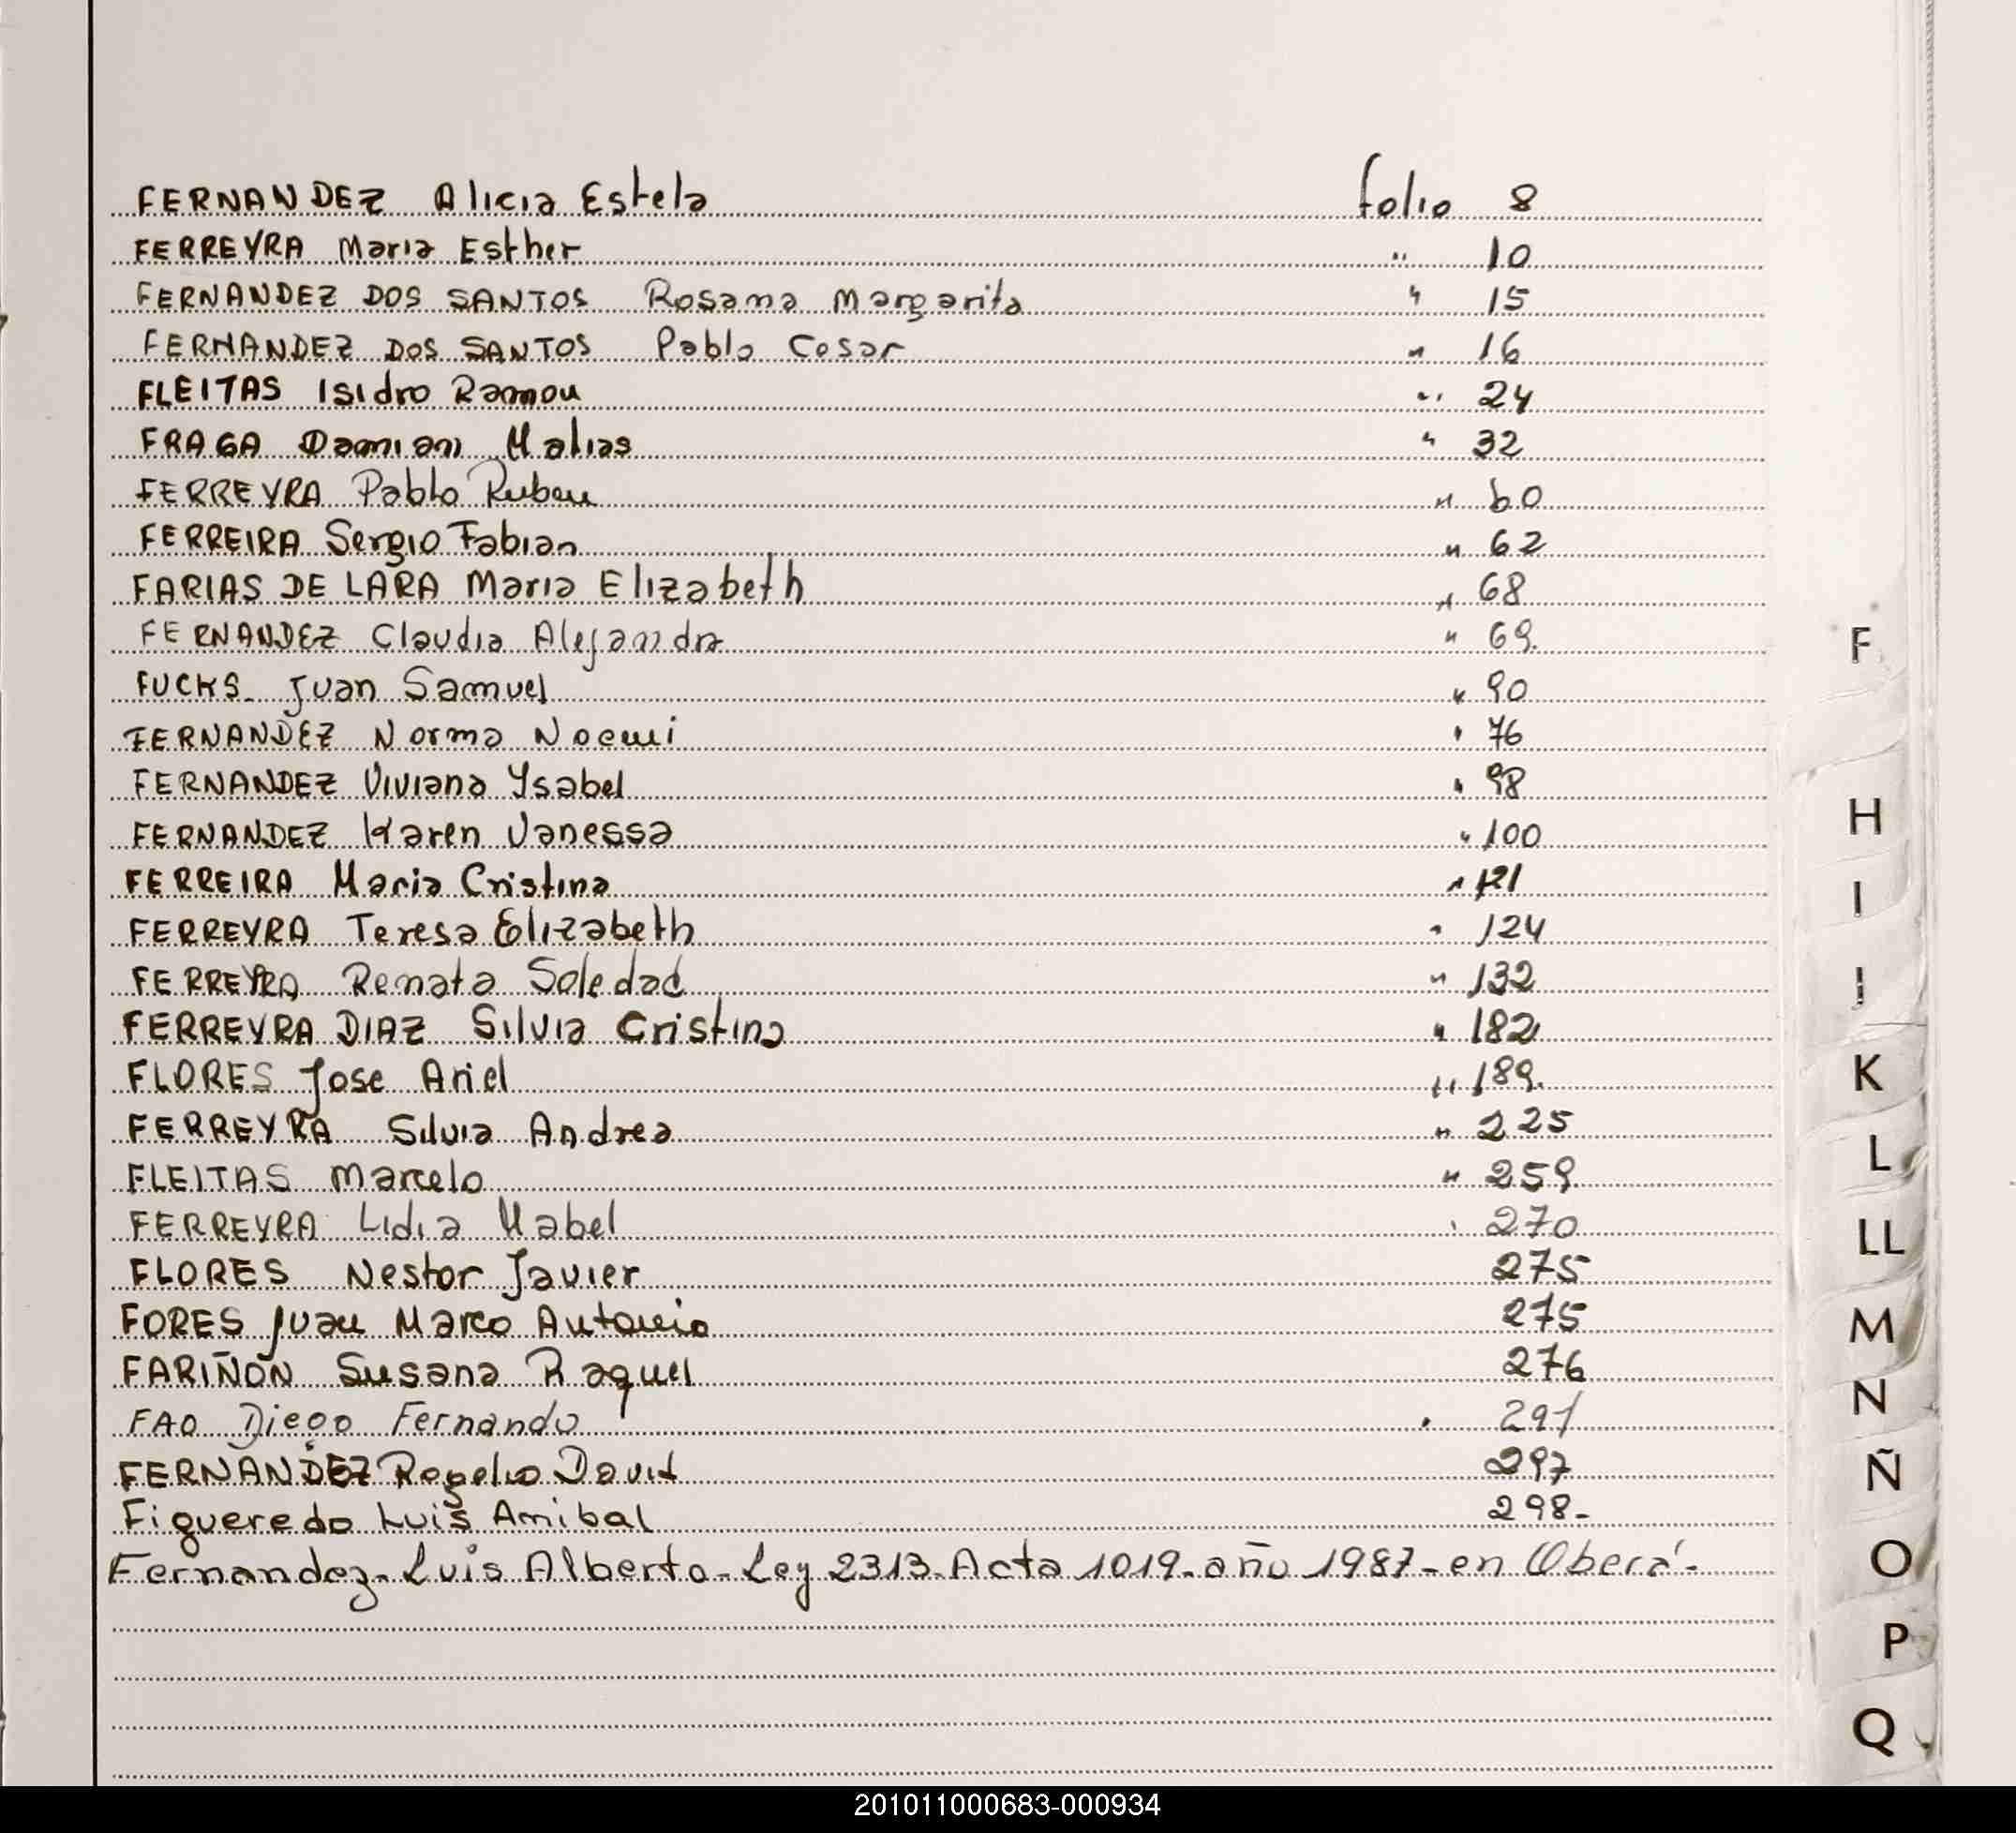 FERNANDEZ Alicia Estela folio 8
FERREYRA Maria Esther " 10
FERNANDEZ DOS SANTOS Rosana Margarita " 15
FERNANDEZ DOS SANTOS Pablo Cesar " 16
FLEITAS Isidro Ramon " 24
FRAGA Damian Matias " 32
FERREYRA Pablo Ruben " 60
FERREIRA Sergio Fabian " 62
FARIAS DE LARA Maria Elizabeth " 68
FERNANDEZ Claudia Alejandra " 69.
FUCKS Juan Samuel " 90
FERNANDEZ Norma Noemi " 76
FERNANDEZ Viviana Ysabel " 98
FERNANDEZ Karen Vanessa " 100
FERREIRA Maria Cristina " 121
FERREYRA Teresa Elizabeth " 124
FERREYRA Renata Soledad " 132
FERREYRA DIAZ Silvia Cristina " 182
FLORES Jose Ariel " 189.
FERREYRA Silvia Andrea " 225
FLEITAS Marcelo " 259
FERREYRA Lidia Mabel " 270
FLORES Nestor Javier 275
FORES Juan Marco Antonio 275
FARIÑON Susana Raquel 276
FAO Diego Fernando 291
FERNANDEZ Rogelio David 297
Figueredo Luis Anibal 298-
Fernandez- Luis Alberto- Ley 2313- Acta 1019- año 1987- en Oberá-
F
H
I
J
K
L
LL
M
N
Ñ
O
P
Q
201011000683-000934